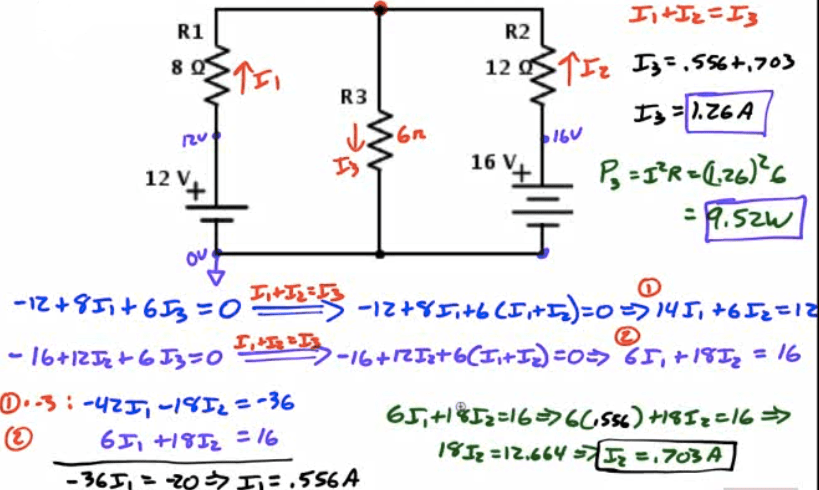 R1
8 Ω
I₁
12V
12 V
+
0V
R3
6Ω
I₃
R2
12 Ω
I₂
16V
16 V
+
I₁+I₂=I₃
I₃=.556+.703
I₃=1.26A
P₃=I²R=(1.26)²6
=9.52W
-12+8I₁+6I₃=0 I₁+I₂=I₃ ⇒ -12+8I₁+6(I₁+I₂)=0 ⇒ ① 14I₁+6I₂=12
-16+12I₂+6I₃=0 I₁+I₂=I₃ ⇒ -16+12I₂+6(I₁+I₂)=0 ⇒ ② 6I₁+18I₂=16
①·-3: -42I₁-18I₂=-36
② 6I₁+18I₂=16
-36I₁=-20 ⇒ I₁=.556A
6I₁+18I₂=16 ⇒ 6(.556)+18I₂=16 ⇒
18I₂=12.664 ⇒ I₂=.703A